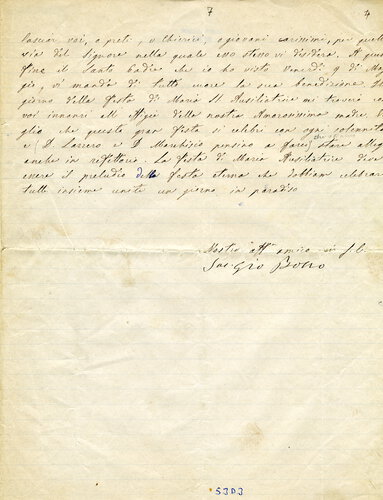 7
4
lasciar voi, o preti, o Chierici, o giovani carissimi, per quella
via del Signore nella quale esso stesso vi desidera. A questo
fine il Santo Padre che io ho visto Venerdì 9 di Mag
gio, vi manda di tutto cuore la sua benedizione. Il
giorno della festa di Maria SS Ausiliatrice mi troverò con
voi innanzi all' della nostra Amorosissima madre. Vo
glio che questa gran festa si celebri con ogni solennità
e D. Lazzero e D. Marchisio pensino a farci stare allegri
anche in refettorio. La festa di Maria Ausiliatrice deve
essere il preludio della festa eterna che dobbiam celebrare
tutti insieme uniti un giorno in paradiso
Vostro aff amico in G. C.
Sac. Gio Bosco
5303